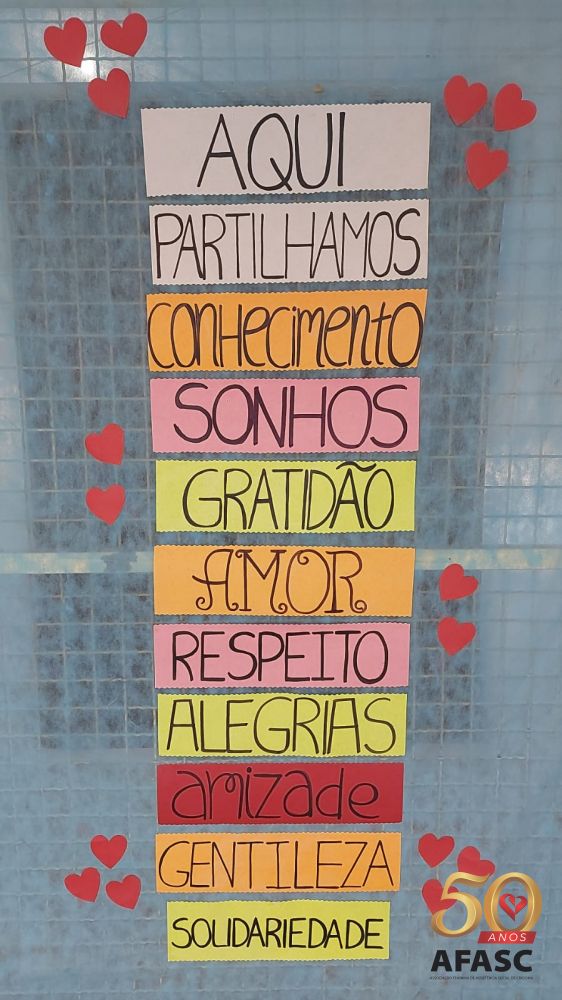 AQUI
PARTILHAMOS
conhecimento
SONHOS
GRATIDÃO
AMOR
RESPEITO
ALEGRIAS
amizade
GENTILEZA
SOLIDARIEDADE
50
ANOS
AFASC